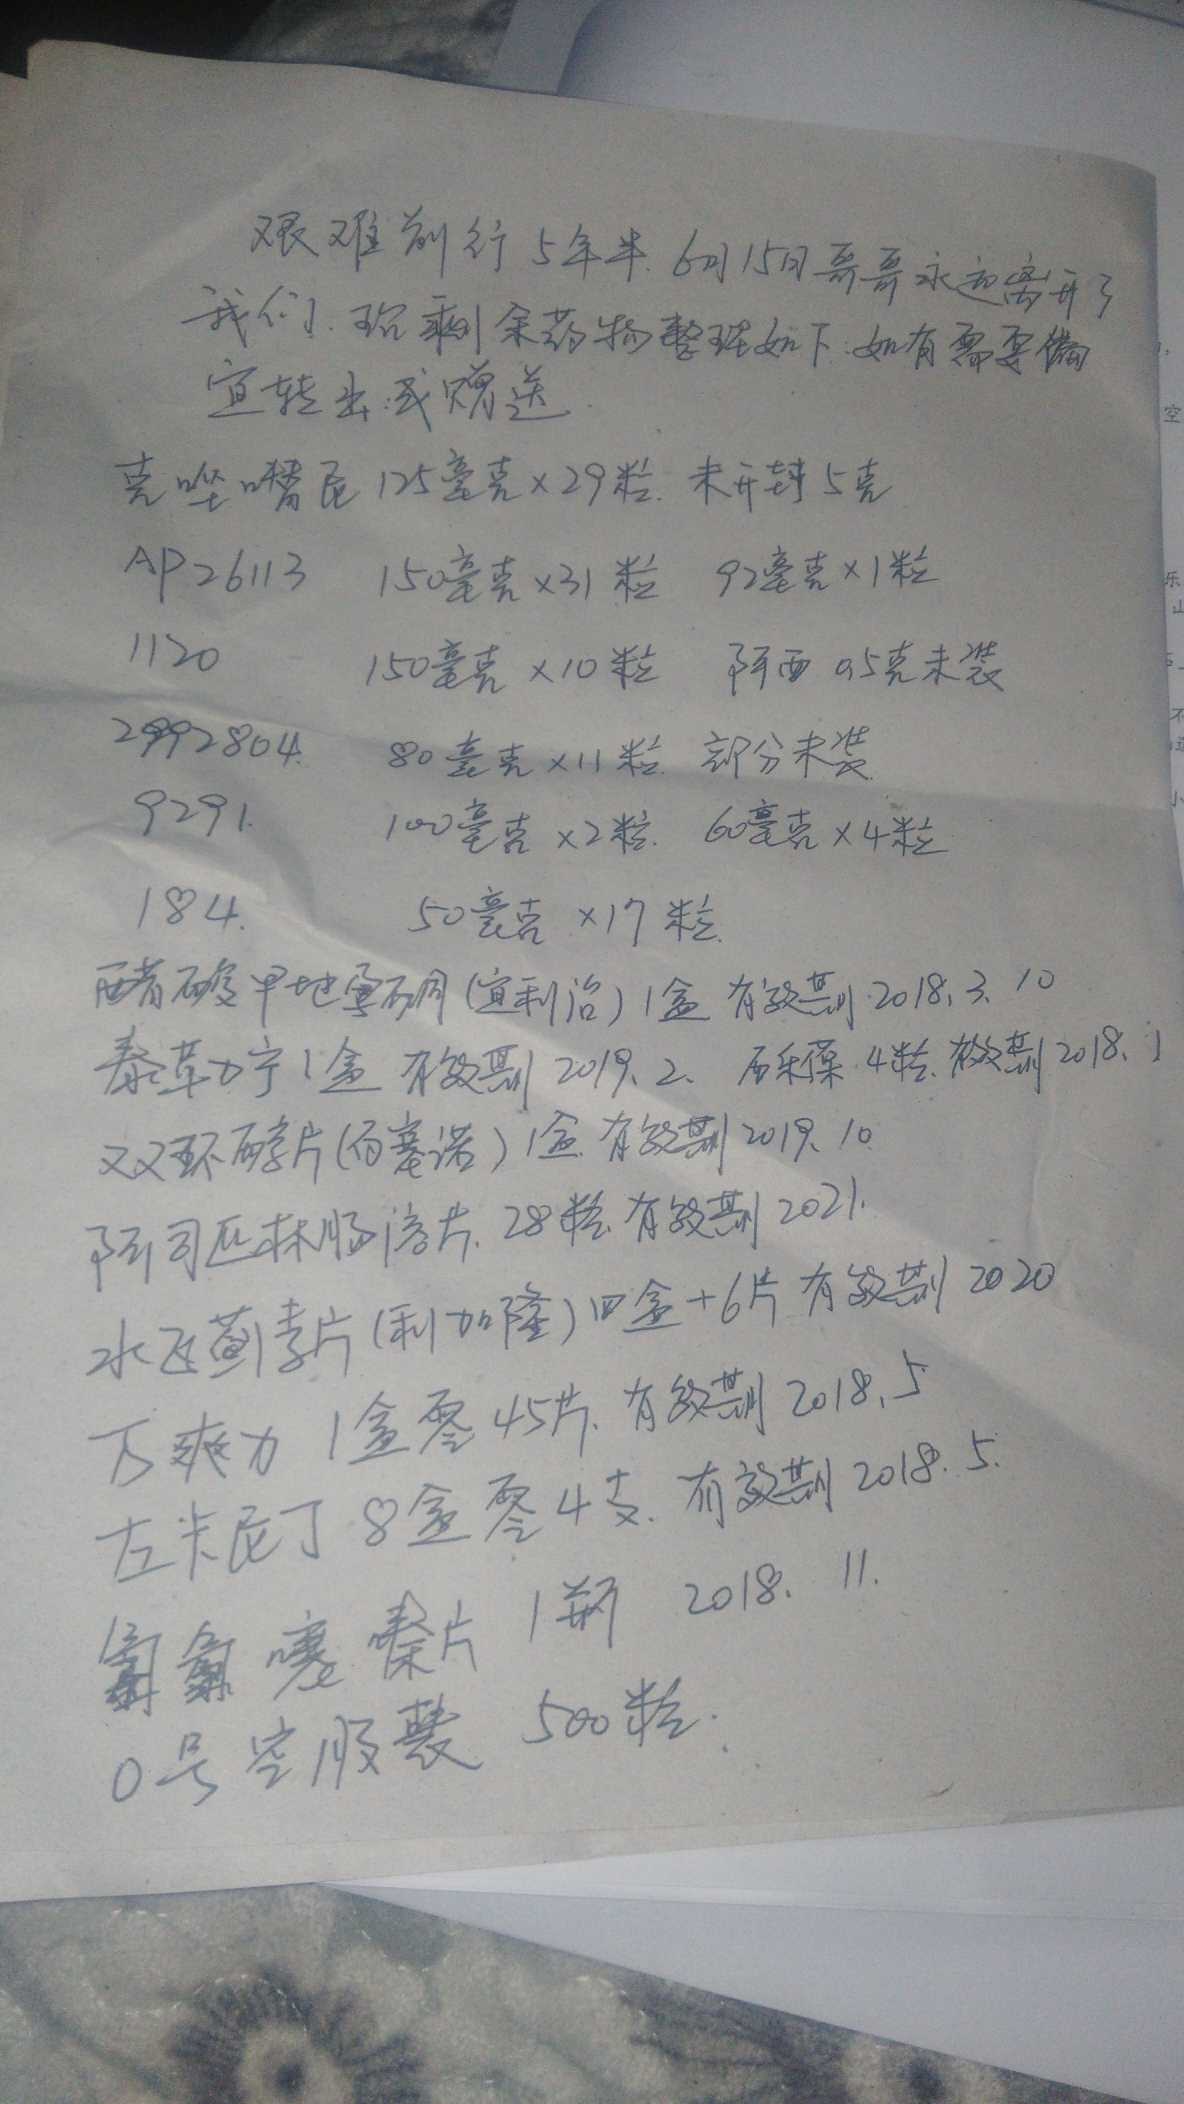 艰难前行5年半.6月15日哥哥永远离开了
我们.现剩余药物整理如下.如有需要偏
宜转出或赠送.
克唑嘧尼 125毫克×29粒. 未开封5克
AP26113 150毫克×31粒 92毫克×1粒
1120 150毫克×10粒 阿西0.5克未装
2992804. 80毫克×11粒. 部分未装
9291. 100毫克×2粒. 60毫克×4粒
184. 50毫克×17粒.
醋酸甲地孕酮(宜利治)1盒 有效期2018.3.10
泰萃力宁1盒 有效期2019.2. 4粒.有效期2018.1
双环醇片(百塞诺)1盒.有效期2019.10.
阿司匹林肠溶片.28粒.有效期2021.
水飞蓟素片(利加隆)四盒+6片有效期2020
万爽力 1盒零45片.有效期2018.5
左卡尼丁8盒零4支.有效期2018.5.
噻嗪片 1瓶 2018.11.
0号空胶囊 500粒.